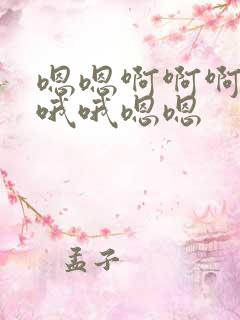 嗯嗯啊啊啊
哦哦嗯嗯
孟子